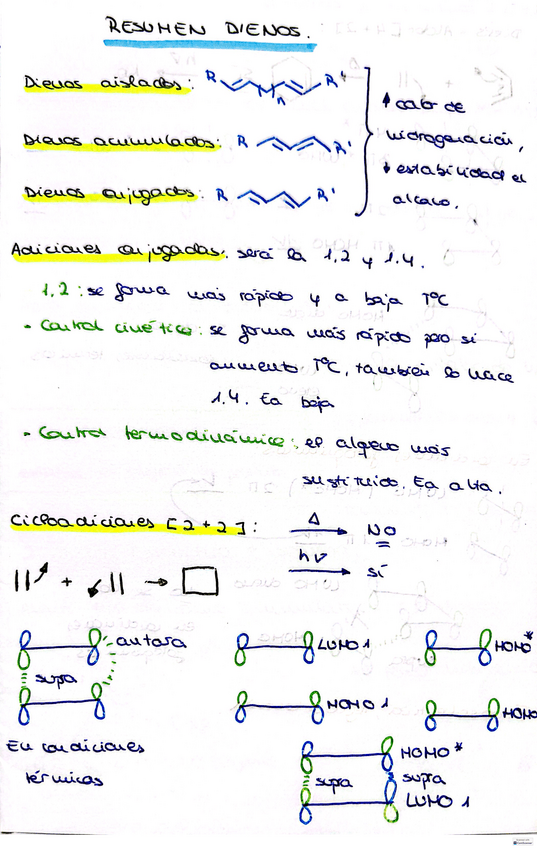 RESUMEN DIENOS.
Dienos aislados: R R'
n
Dienos acumulados: R R'
Dienos conjugados: R R'
↑ calor de
hidrogenación,
↓ estabilidad el
alceno.
Adiciones conjugadas. será la 1,2 y 1.4.
1,2: se forma más rápido y a baja TºC
- Control cinético: se forma más rápido pero si
aumento TºC, también lo hace
1.4. Ea baja
- Control termodinámico: el alqueno más
sustituido. Ea alta.
Cicloadiciones [2+2]: Δ → NO
hν → sí
+ →
antara
supra
LUMO 1
HOMO*
HOMO 1
HOMO
En condiciones
térmicas
HOMO*
supra supra
LUMO 1